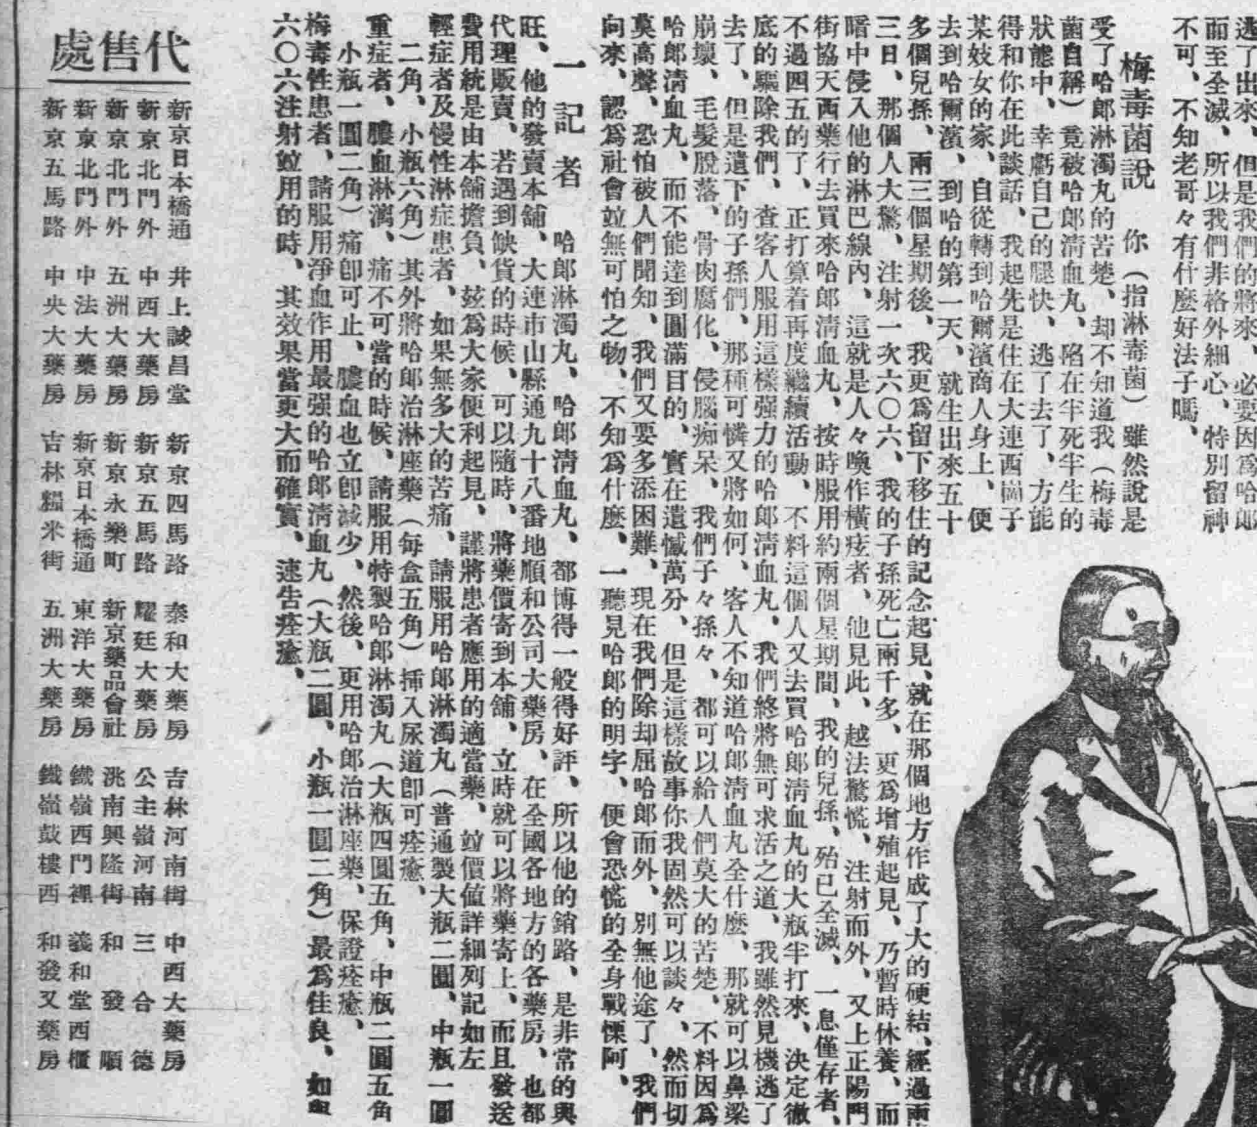 逃了出來、但是我們的將來、必要因爲哈郎
而至全滅、所以我們非格外細心、特別留神
不可、不知老哥々有什麼好法子嗎、
梅毒菌說　你（指淋毒菌）雖然說是
受了哈郎淋濁丸的苦楚、却不知道我（梅毒
菌自稱）竟被哈郎淸血丸、陷在半死半生的
狀態中、幸虧自己的腿快、逃了去了、方能
得和你在此談話、我起先是住在大連西崗子
某妓女的家、自從轉到哈爾濱商人身上、便
去到哈爾濱、到哈的第一天、就生出來五十
多個兒孫、兩三個星期後、我更爲留下移住的記念起見、就在那個地方作成了大的硬結、經過兩
三日、那個人大驚、注射一次六〇六、我的子孫死亡兩千多、更爲增殖起見、乃暫時休養、而
暗中侵入他的淋巴線內、這就是人々喚作橫痃者、他見此、越法驚慌、注射而外、又上正陽門
街協天西藥行去買來哈郎淸血丸、按時服用約兩個星期間、我的兒孫、殆已全滅、一息僅存者、
不過四五的了、正打算着再度繼續活動、不料這個人又去買哈郎淸血丸的大瓶半打來、決定徹
底的驅除我們、查客人服用這樣强力的哈郎淸血丸、我們終將無可求活之道、我雖然見機逃了
去了、但是遺下的子孫們、那種可憐又將如何、客人不知道哈郎淸血丸全什麼、那就可以鼻梁
崩壞、毛髮脫落、骨肉腐化、侵腦痴呆、我們子々孫々、都可以給人們莫大的苦楚、不料因爲
哈郎淸血丸、而不能達到圓滿目的、實在遺憾萬分、但是這樣故事你我固然可以談々、然而切
莫高聲、恐怕被人們聞知、我們又要多添困難、現在我們除却屈哈郎而外、別無他途了、我們
向來、認爲社會並無可怕之物、不知爲什麼、一聽見哈郎的明字、便會恐慌的全身戰慄阿、
一記者　哈郎淋濁丸、哈郎淸血丸、都博得一般得好評、所以他的銷路、是非常的興
旺、他的發賣本舖、大連市山縣通九十八番地順和公司大藥房、在全國各地方的各藥房、也都
代理販賣、若遇到缺貨的時候、可以隨時、將藥價寄到本舖、立時就可以將藥寄上、而且發送
費用統是由本舖擔負、茲爲大家便利起見、謹將患者應用的適當藥、並價値詳細列記如左
輕症者及慢性淋症患者、如果無多大的苦痛、請服用哈郎淋濁丸（普通製大瓶二圓、中瓶一圓
二角、小瓶六角）其外將哈郎治淋座藥（每盒五角）揷入尿道卽可痊癒、
重症者、膿血淋漓、痛不可當的時候、請服用特製哈郎淋濁丸（大瓶四圓五角、中瓶二圓五角
小瓶一圓二角）痛卽可止、膿血也立卽減少、然後、更用哈郎治淋座藥、保證痊癒、
梅毒性患者、請服用淨血作用最强的哈郎淸血丸（大瓶二圓、小瓶一圓二角）最爲佳良、如與
六〇六注射並用的時、其效果當更大而確實、速告痊癒、
代售處
新京日本橋通　井上誠昌堂　新京四馬路　泰和大藥房　吉林河南街　中西大藥房
新京北門外　中西大藥房　新京五馬路　耀廷大藥房　公主嶺河南　三合德
新京北門外　五洲大藥房　新京永樂町　新京藥品會社　洮南興隆街　和發順
新京北門外　中法大藥房　新京日本橋通　東洋大藥房　鐵嶺西門裡　義和堂西櫃
新京五馬路　中央大藥房　吉林糧米街　五洲大藥房　鐵嶺鼓樓西　和發又藥房